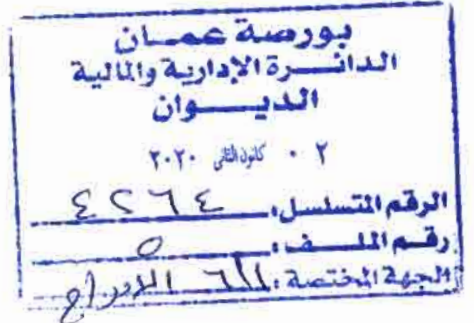 بورصة عمان
الدائرة الإدارية والمالية
الديوان
٠٢ كانون الثاني ٢٠٢٠
الرقم المتسلسل: ٤٢٦٤
رقم الملف: ٥
الجهة المختصة: الإدراج